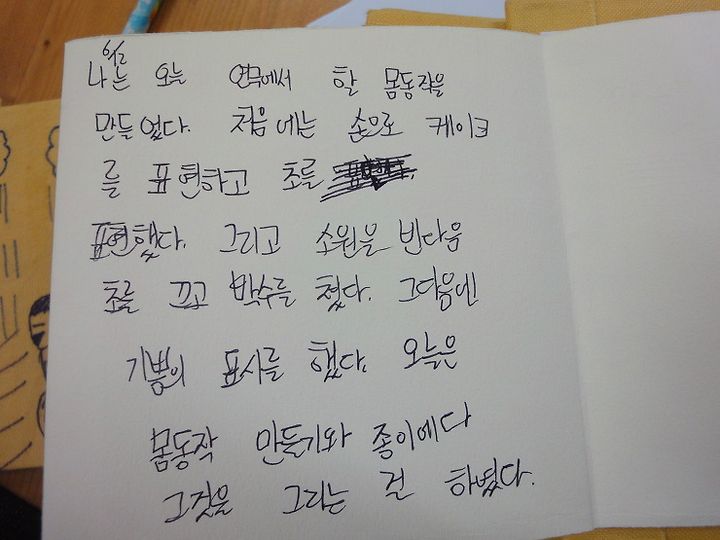 6/2
나는 오늘 연극에서 할 몸동작을
만들었다. 처음에는 손으로 케이크
를 표현하고 초를
표현했다. 그리고 소원을 빈다음
초를 끄고 박수를 쳤다. 그다음엔
기쁨의 표시를 했다. 오늘은
몸동작 만들기와 종이에다
그것을 그리는 걸 하였다.